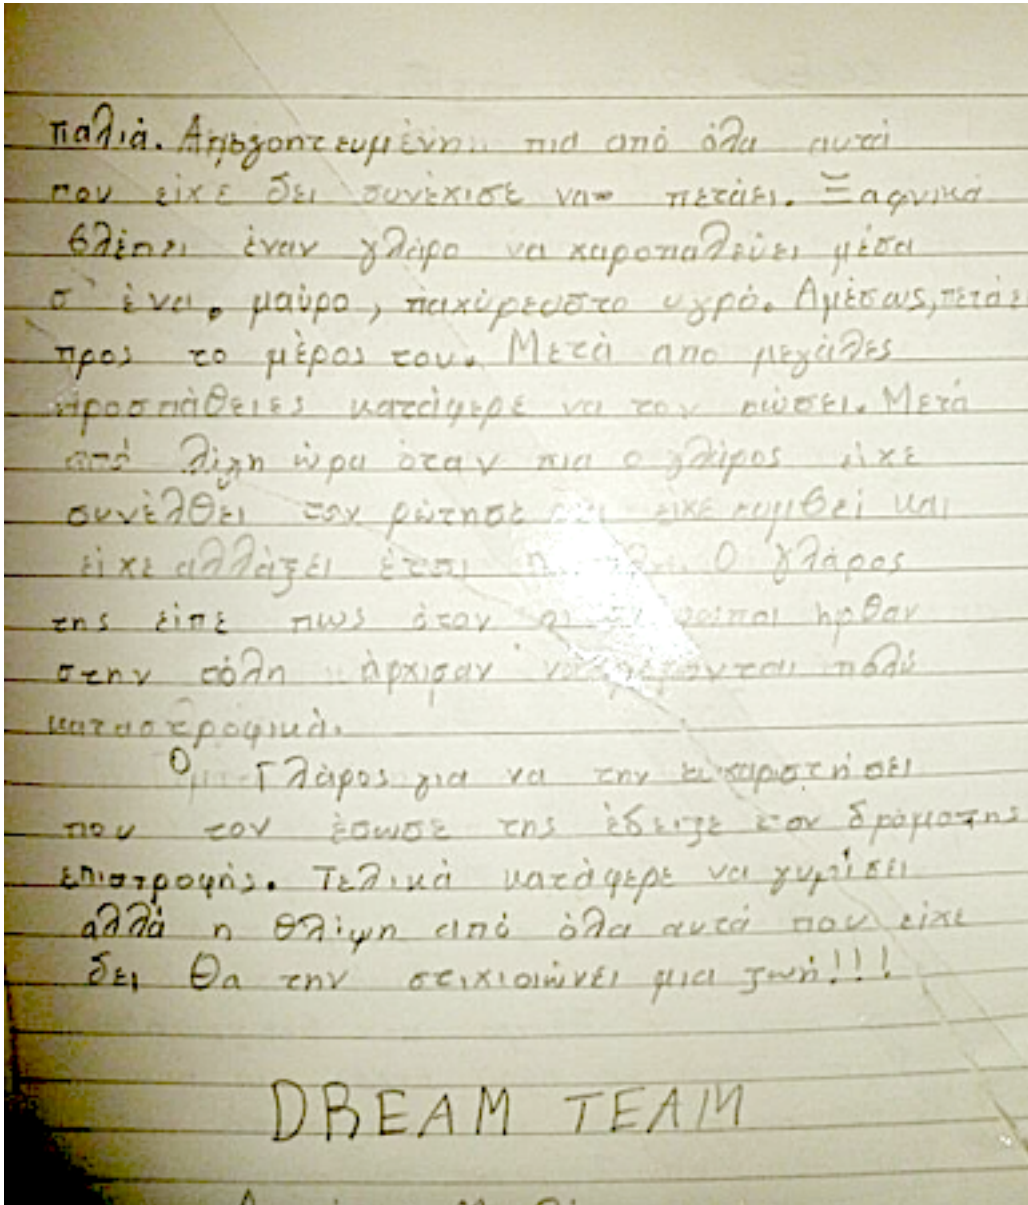 παλιά. Απογοητευμένη πια από όλα αυτά
που είχε δει συνέχισε να πετάει. Ξαφνικά
βλέπει έναν γλάρο να χαροπαλεύει μέσα
σ' ένα, μαύρο, παχύρευστο υγρό. Αμέσως, πετάει
προς το μέρος του. Μετά απο μεγάλες
προσπάθειες κατάφερε να τον σώσει. Μετά
από λίγη ώρα όταν πια ο γλάρος είχε
συνέλθει τον ρώτησε είχε συμβεί και
είχε αλλάξει έτσι Ο γλάρος
της είπε πως όταν οι ήρθαν
στην πόλη άρχισαν να πολύ
καταστροφικά.
Ο Γλάρος για να την ευχαριστήσει
που τον έσωσε της έδειξε τον δρόμο της
επιστροφής. Τελικά κατάφερε να γυρίσει
αλλά η θλίψη από όλα αυτά που είχε
δει θα την στιχιοιώνει μια ζωή!!!
DREAM TEAM